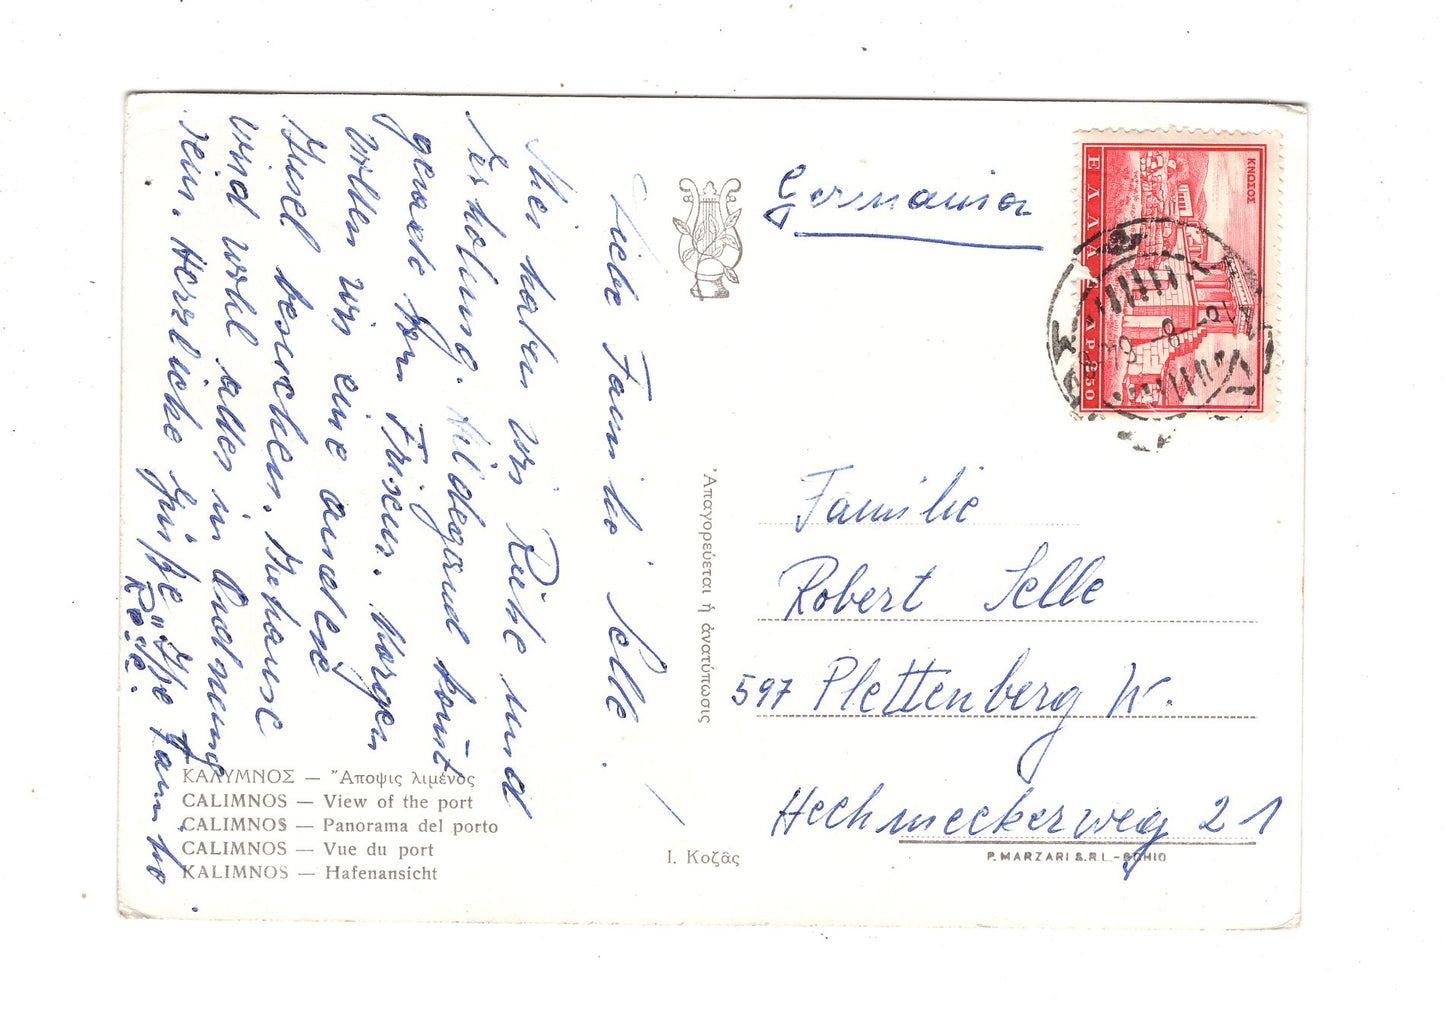 Liebe Familie Selle.
Hier haben wir Ruhe und
Erholung. Hildegard kommt
gerade vom Friseur. Morgen
wollen wir eine andere
Insel besuchen. Zuhause
wird wohl alles in Ordnung
sein. Herzliche Grüße Ihre Familie
Germania
Familie
Robert Selle
597 Plettenberg W.
Hechmeckerweg 21
ΚΝΩΣΟΣ
ΕΛΛΑΣ
ΔΡ 2.50
Ἀπαγορεύεται ἡ ἀνατύπωσις
ΚΑΛΥΜΝΟΣ — Ἄποψις λιμένος
CALIMNOS — View of the port
CALIMNOS — Panorama del porto
CALIMNOS — Vue du port
KALIMNOS — Hafenansicht
Ι. Κοζᾶς
P. MARZARI S.R.L.-SCHIO